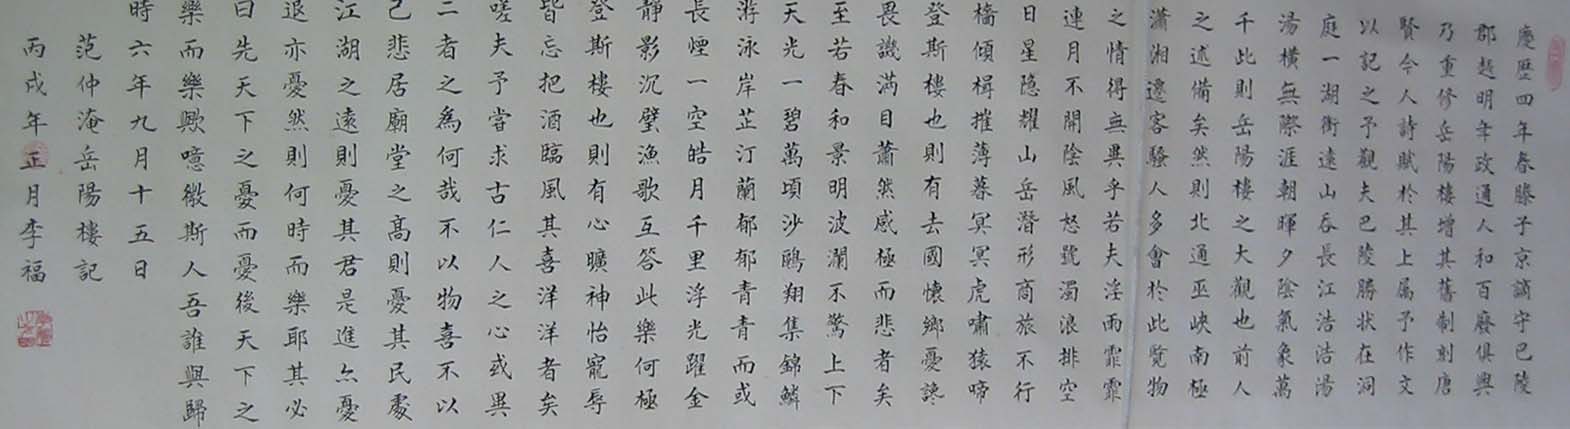 慶歷四年春滕子京謫守巴陵
郡越明年政通人和百廢俱興
乃重修岳陽樓增其舊制刻唐
賢今人詩賦於其上属予作文
以記之予觀夫巴陵勝状在洞
庭一湖銜遠山吞長江浩浩湯
湯橫無際涯朝暉夕陰氣象萬
千此則岳陽樓之大觀也前人
之述備矣然則北通巫峽南極
瀟湘遷客騷人多會於此覽物
之情得無異乎若夫淫雨霏霏
連月不開陰風怒號濁浪排空
日星隐耀山岳潛形商旅不行
檣傾楫摧薄暮冥冥虎嘯猿啼
登斯樓也則有去國懷鄉憂讒
畏譏满目蕭然感極而悲者矣
至若春和景明波瀾不驚上下
天光一碧萬頃沙鷗翔集錦鱗
游泳岸芷汀蘭郁郁青青而或
長煙一空皓月千里浮光躍金
靜影沉璧漁歌互答此樂何極
登斯樓也則有心曠神怡寵辱
皆忘把酒臨風其喜洋洋者矣
嗟夫予嘗求古仁人之心或異
二者之為何哉不以物喜不以
己悲居廟堂之高則憂其民處
江湖之遠則憂其君是進亦憂
退亦憂然則何時而樂耶其必
曰先天下之憂而憂後天下之
樂而樂歟噫微斯人吾誰與歸
時六年九月十五日
范仲淹岳陽樓記
丙戌年正月李福